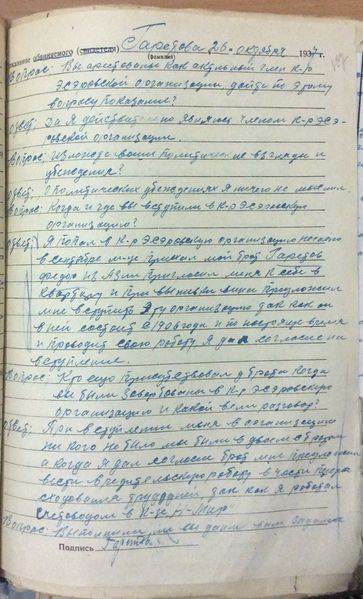 Показание обвиняемого (свидетеля) Гаретова 26 октября 1937 г.
(фамилия)
Вопрос: Вы арестованы как активный член к-р
эсэровской организации дайте по этому
вопросу показание?
Ответ: Да я действительно являюсь членом к-р эсэ-
ровской организации
Вопрос: Изложите ваши политические взгляды и
убеждения?
Ответ: О политических убеждениях я ничего не мыслил
Вопрос: Когда и где вы вступили в к-р эсэровскую
организацию?
Ответ: Я попал в к-р эсэровскую организацию
в сентябре м-це приехал мой брат Гаретов
из Азии пригласил меня к себе в
квартиру и при выпивки вина предложил
мне вступить в эту организацию так как он
в ней состоит с 1906 года и по настоящие время
и проводит свою работу я дал согласие на
вступление.
Вопрос: Кто еще присутствовал у брата когда
вы были завербованы в к-р эсэровскую
организацию и какой вели разговор?
Ответ: При вступлении меня в организацию
ни кого не было мы были в двоем с братом
а когда я дал согласие брат мне предложил
вести вредительскую работу в части
трудодней, так как я работал
счетоводом в к-зе Н-Мир
Вопрос: Выполнили ли вы данные вам задания
Подпись